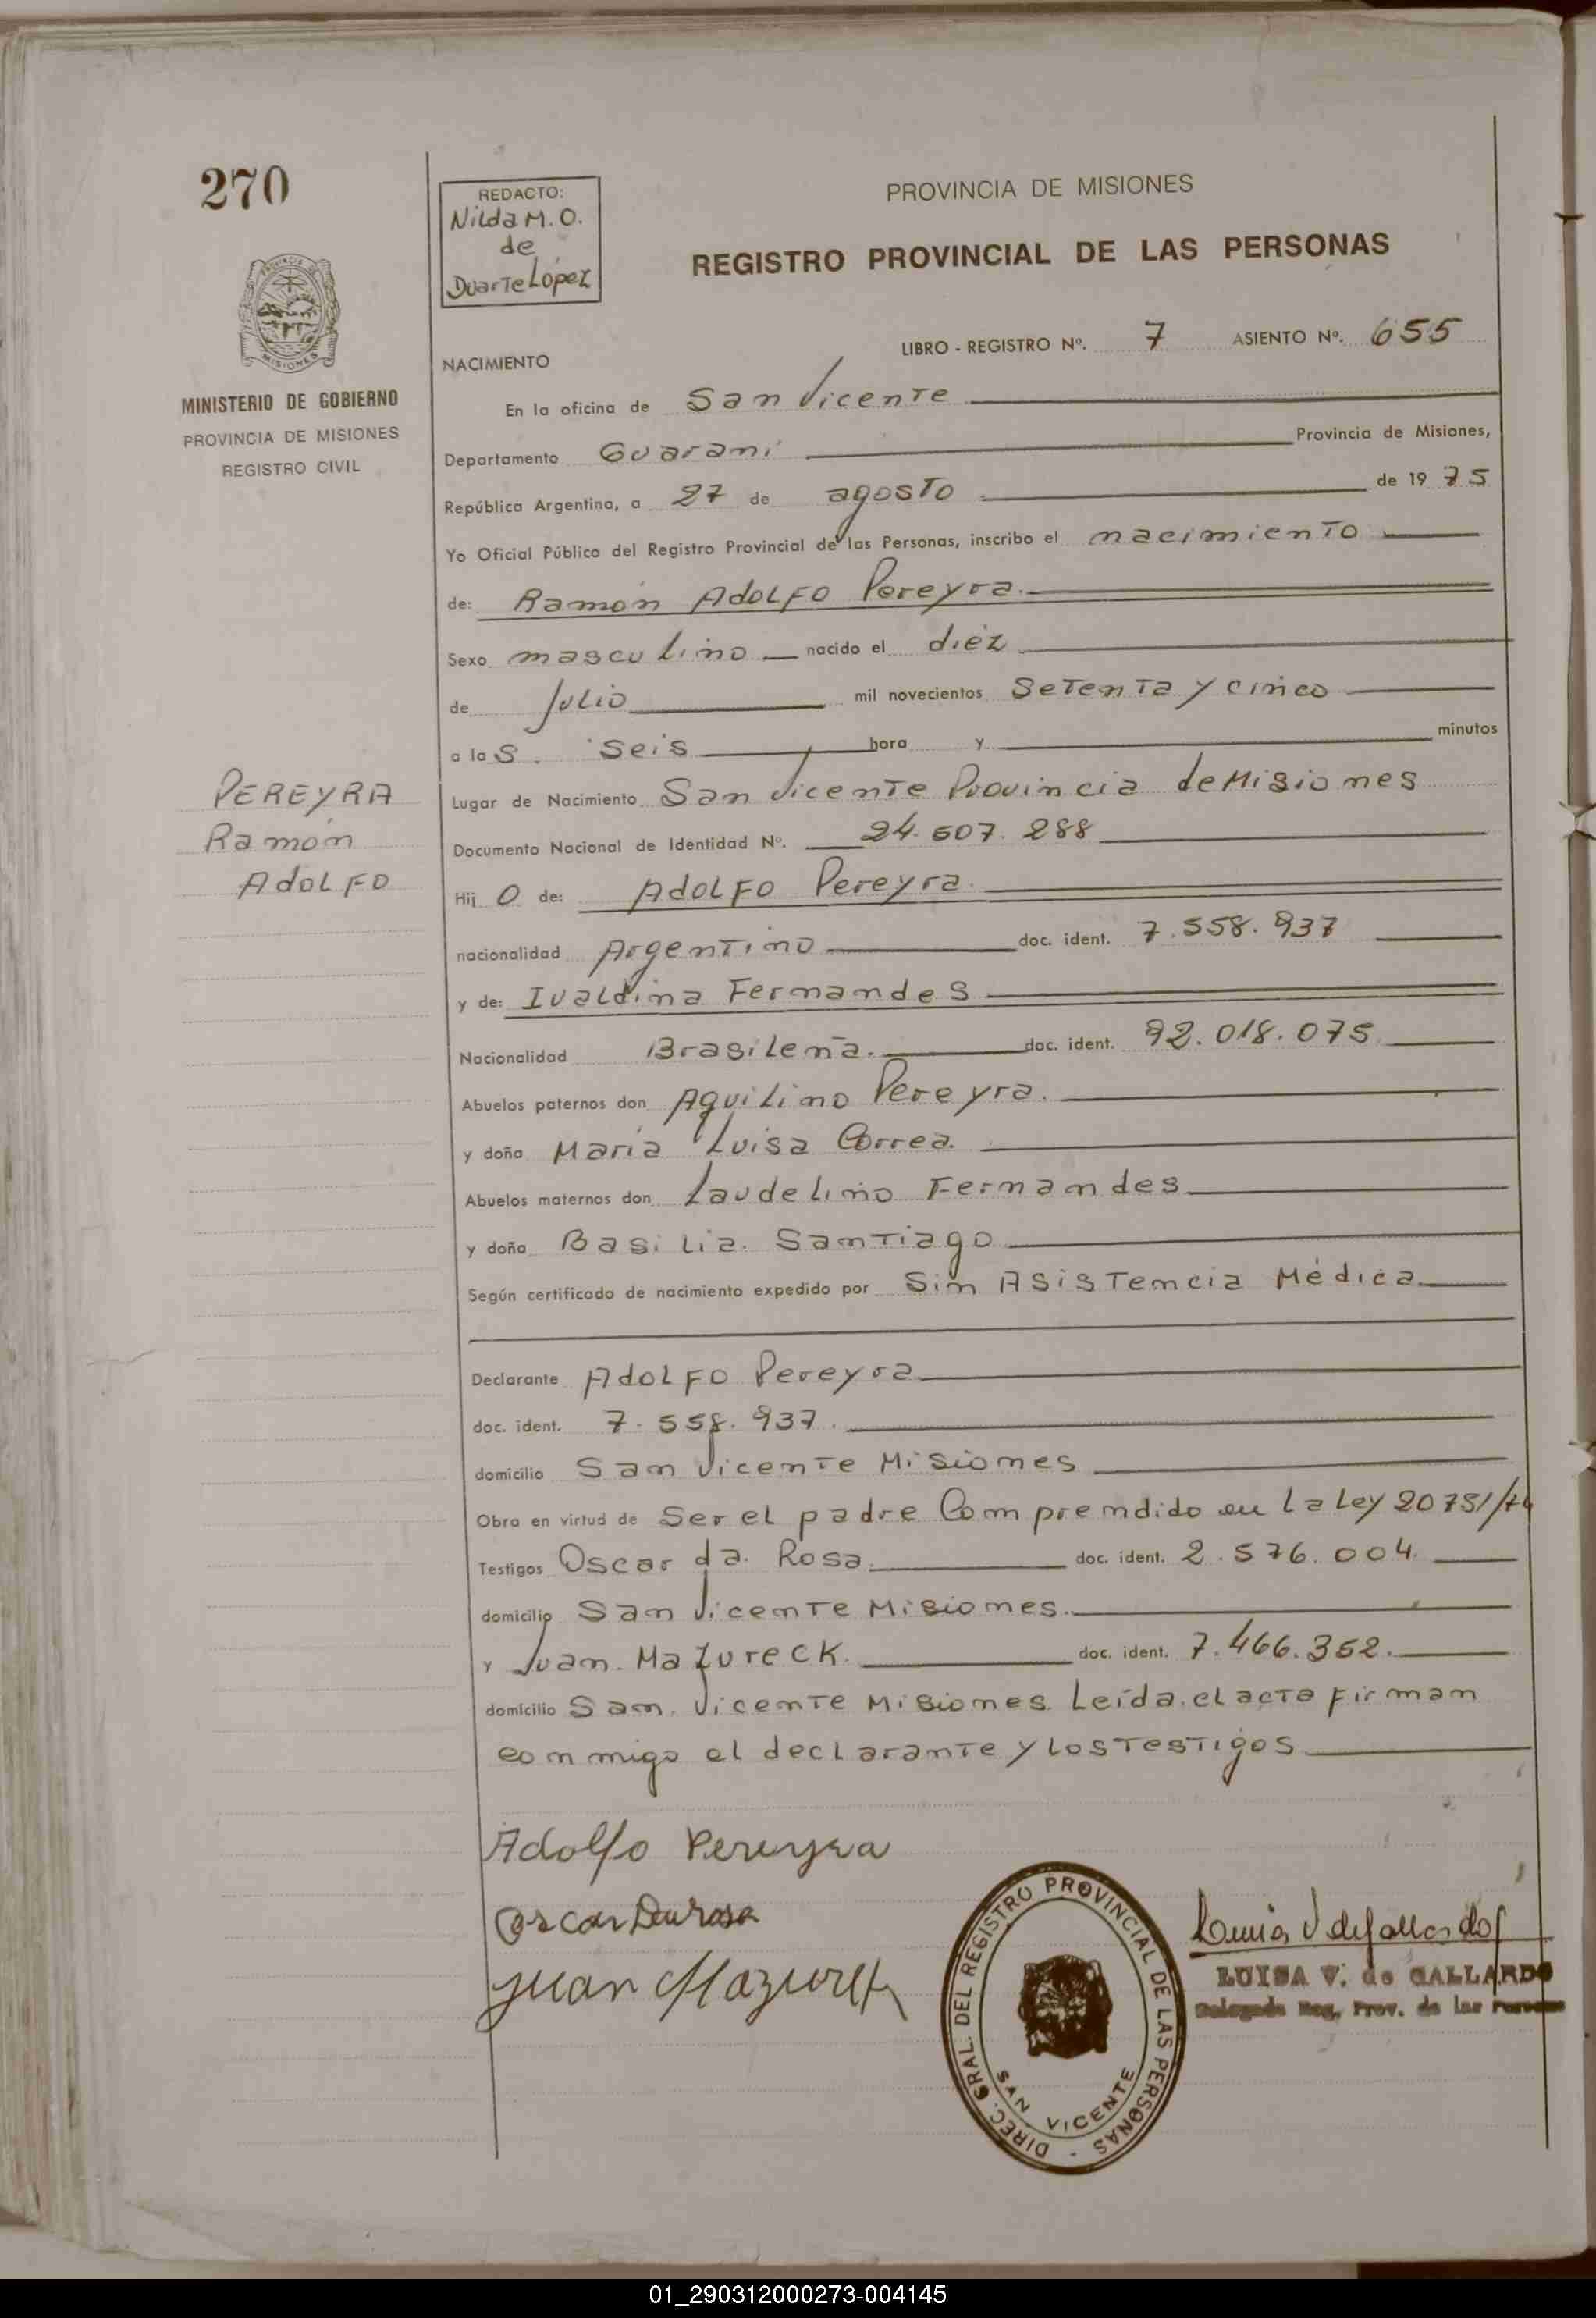 270
REDACTO:
Nilda M. O.
de
Duarte López
PROVINCIA DE MISIONES
REGISTRO PROVINCIAL DE LAS PERSONAS
PROVINCIA DE
MISIONES
MINISTERIO DE GOBIERNO
PROVINCIA DE MISIONES
REGISTRO CIVIL
LIBRO - REGISTRO Nº. 7 ASIENTO Nº. 655
NACIMIENTO
En la oficina de San Vicente
Departamento Guaraní Provincia de Misiones,
República Argentina, a 27 de agosto de 19 75
Yo Oficial Público del Registro Provincial de las Personas, inscribo el nacimiento
de: Ramón Adolfo Pereyra
Sexo masculino nacido el diéz
de Julio mil novecientos Setenta y cinco
a la s. seis hora y minutos
Lugar de Nacimiento San Vicente Provincia de Misiones
Documento Nacional de Identidad Nº. 24.607.288
PEREYRA
Ramón
Adolfo
Hij o de: Adolfo Pereyra.
nacionalidad Argentino doc. ident. 7.558.937
y de: Ivaldina Fernandes
Nacionalidad Brasileña. doc. ident. 92.018.075
Abuelos paternos don Aquilino Pereyra.
y doña María Luisa Correa.
Abuelos maternos don Laudelino Fernandes
y doña Basilia. Santiago
Según certificado de nacimiento expedido por Sin Asistencia Médica
Declarante Adolfo Pereyra
doc. ident. 7.558.937.
domicilio San Vicente Misiones
Obra en virtud de Ser el padre Comprendido en la Ley 20751/74
Testigos Oscar da. Rosa. doc. ident. 2.576.004.
domicilio San Vicente Misiones.
y Juan. Mazureck. doc. ident. 7.466.352.
domicilio San. Vicente Misiones. Leída. el acta firman
conmigo el declarante y los testigos
Adolfo Pereyra
Oscar Darosa
Juan Mazurek
DIREC. GRAL. DEL REGISTRO PROVINCIAL DE LAS PERSONAS -
SAN VICENTE
Luisa V de Gallardo
LUISA V. de GALLARDO
Delegada Reg. Prov. de las Personas
01_290312000273-004145